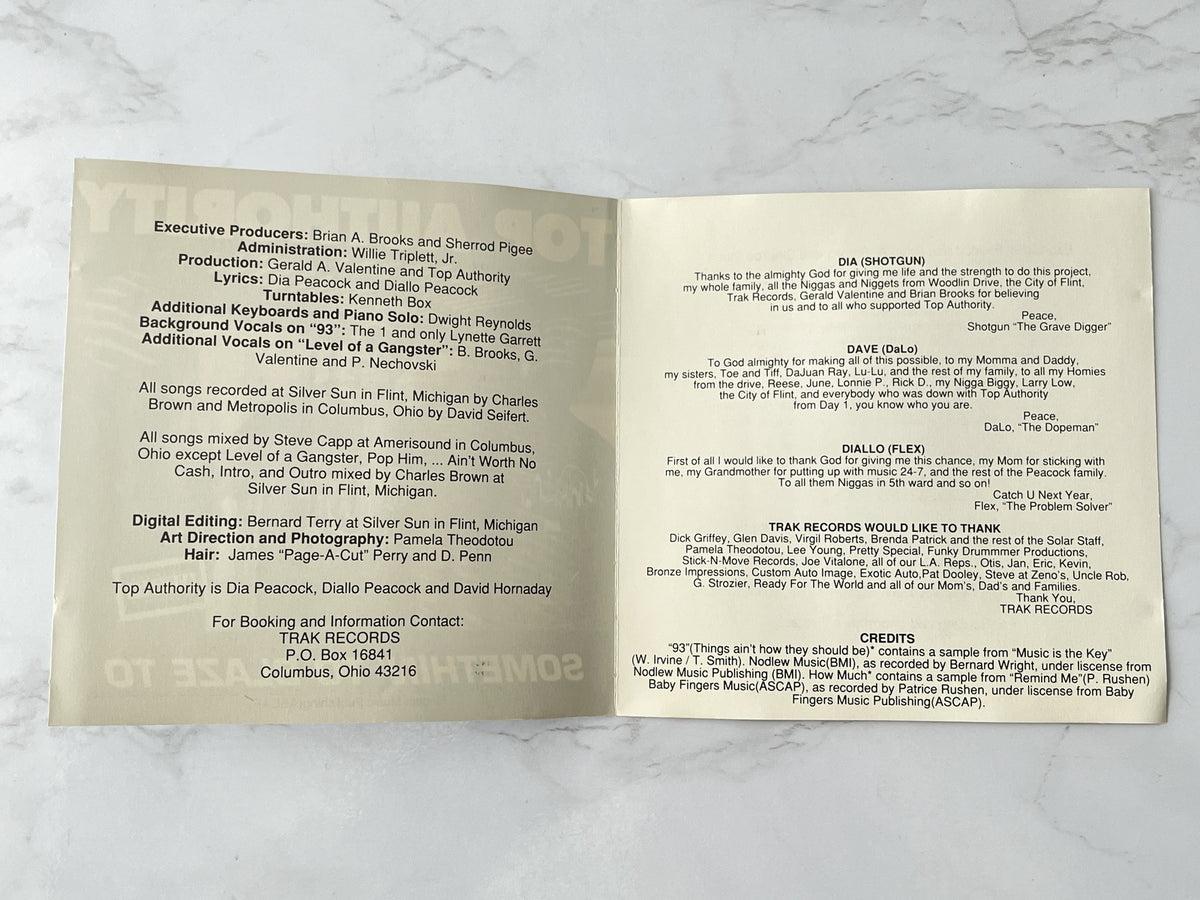 Executive Producers: Brian A. Brooks and Sherrod Pigee
Administration: Willie Triplett, Jr.
Production: Gerald A. Valentine and Top Authority
Lyrics: Dia Peacock and Diallo Peacock
Turntables: Kenneth Box
Additional Keyboards and Piano Solo: Dwight Reynolds
Background Vocals on “93”: The 1 and only Lynette Garrett
Additional Vocals on “Level of a Gangster”: B. Brooks, G.
Valentine and P. Nechovski
All songs recorded at Silver Sun in Flint, Michigan by Charles
Brown and Metropolis in Columbus, Ohio by David Seifert.
All songs mixed by Steve Capp at Amerisound in Columbus,
Ohio except Level of a Gangster, Pop Him, ... Ain't Worth No
Cash, Intro, and Outro mixed by Charles Brown at
Silver Sun in Flint, Michigan.
Digital Editing: Bernard Terry at Silver Sun in Flint, Michigan
Art Direction and Photography: Pamela Theodotou
Hair: James “Page-A-Cut” Perry and D. Penn
Top Authority is Dia Peacock, Diallo Peacock and David Hornaday
For Booking and Information Contact:
TRAK RECORDS
P.O. Box 16841
Columbus, Ohio 43216
DIA (SHOTGUN)
Thanks to the almighty God for giving me life and the strength to do this project,
my whole family, all the Niggas and Niggets from Woodlin Drive, the City of Flint,
Trak Records, Gerald Valentine and Brian Brooks for believing
in us and to all who supported Top Authority.
Peace,
Shotgun “The Grave Digger”
DAVE (DaLo)
To God almighty for making all of this possible, to my Momma and Daddy,
my sisters, Toe and Tiff, DaJuan Ray, Lu-Lu, and the rest of my family, to all my Homies
from the drive, Reese, June, Lonnie P., Rick D., my Nigga Biggy, Larry Low,
the City of Flint, and everybody who was down with Top Authority
from Day 1, you know who you are.
Peace,
DaLo, “The Dopeman”
DIALLO (FLEX)
First of all I would like to thank God for giving me this chance, my Mom for sticking with
me, my Grandmother for putting up with music 24-7, and the rest of the Peacock family.
To all them Niggas in 5th ward and so on!
Catch U Next Year,
Flex, “The Problem Solver”
TRAK RECORDS WOULD LIKE TO THANK
Dick Griffey, Glen Davis, Virgil Roberts, Brenda Patrick and the rest of the Solar Staff,
Pamela Theodotou, Lee Young, Pretty Special, Funky Drummmer Productions,
Stick-N-Move Records, Joe Vitalone, all of our L.A. Reps., Otis, Jan, Eric, Kevin,
Bronze Impressions, Custom Auto Image, Exotic Auto,Pat Dooley, Steve at Zeno's, Uncle Rob,
G. Strozier, Ready For The World and all of our Mom's, Dad's and Families.
Thank You,
TRAK RECORDS
CREDITS
“93”(Things ain't how they should be)* contains a sample from “Music is the Key”
(W. Irvine / T. Smith). Nodlew Music(BMI), as recorded by Bernard Wright, under liscense from
Nodlew Music Publishing (BMI). How Much* contains a sample from “Remind Me”(P. Rushen)
Baby Fingers Music(ASCAP), as recorded by Patrice Rushen, under liscense from Baby
Fingers Music Publishing(ASCAP).